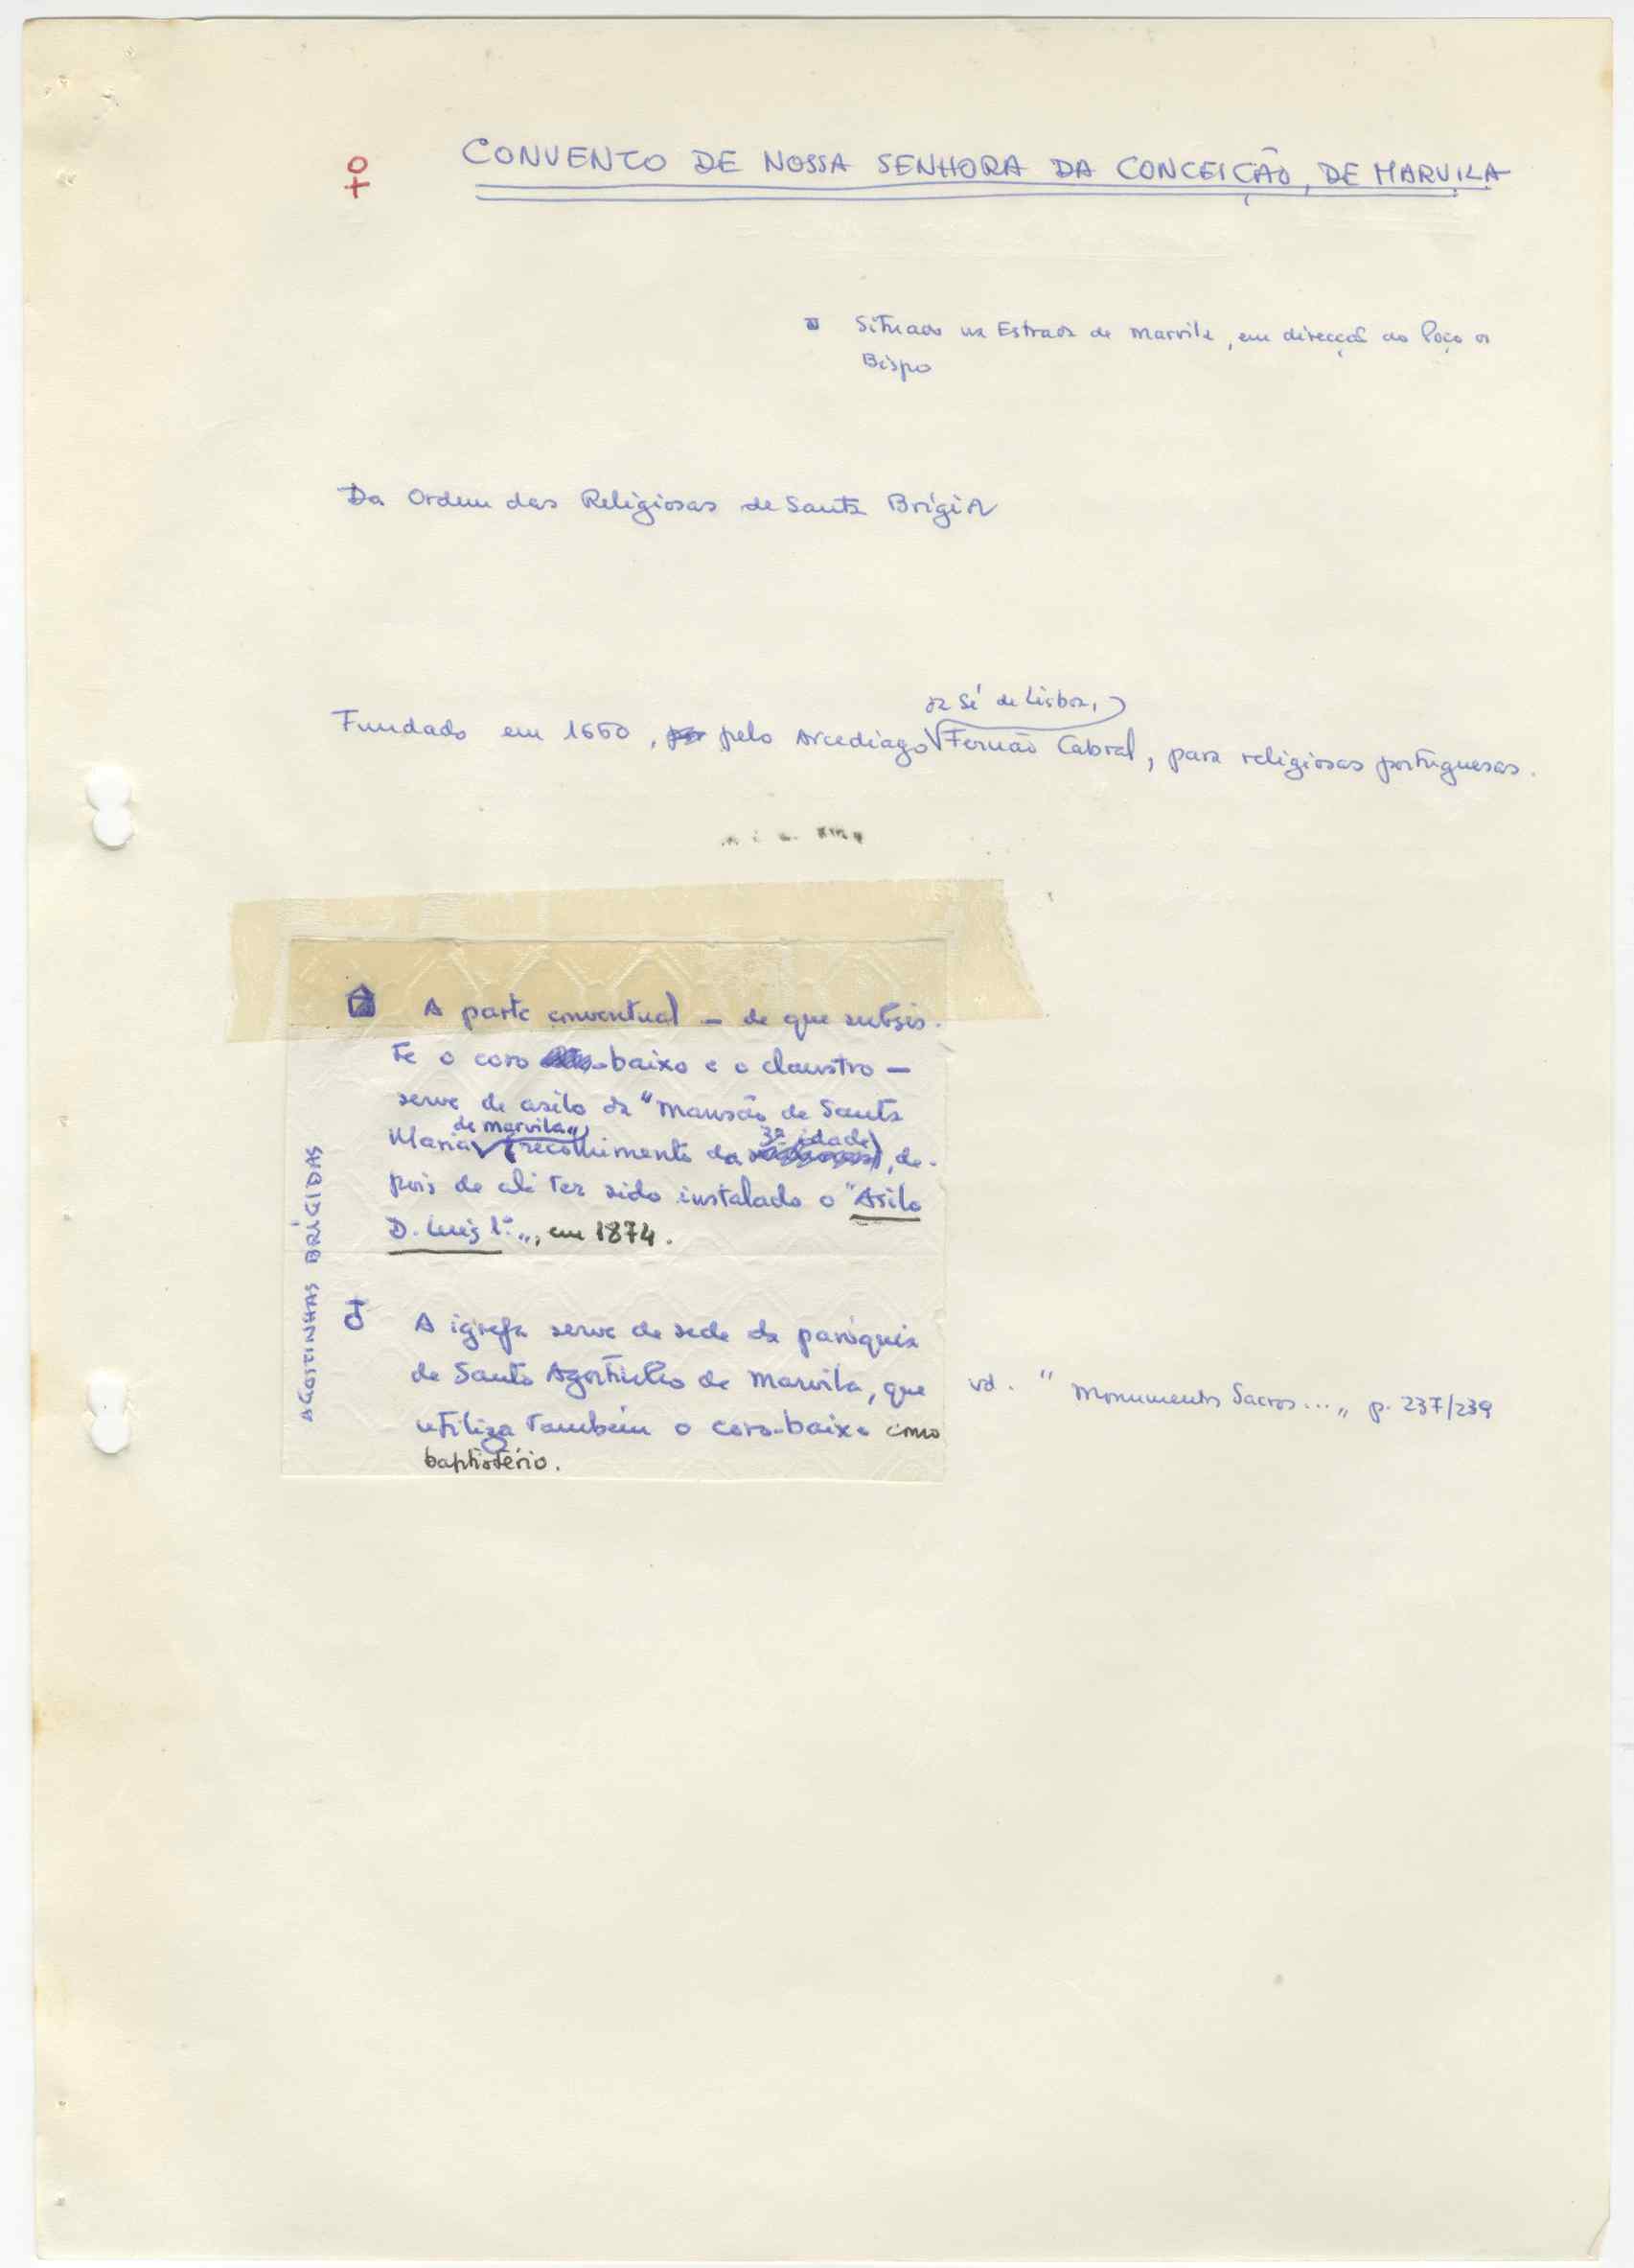 ♀ CONVENTO DE NOSSA SENHORA DA CONCEIÇÃO, DE MARVILA
Situado na Estrada de Marvila, em direcção ao Poço do
Bispo
Da Ordem das Religiosas de Santa Brígida
da Sé de Lisboa,
Fundado em 1660, pelo Arcediago Fernão Cabral, para religiosas portuguesas.
A parte conventual — de que subsis-
te o coro baixo e o claustro —
serve de asilo da "Mansão de Santa
de Marvila„
3ª idade)
Maria (recolhimento da , de-
pois de ali ter sido instalado o "Asilo
D. Luís 1º„, em 1874.
AGOSTINHAS BRÍGIDAS
A igreja serve de sede da paróquia
de Santo Agostinho de Marvila, que
utiliza também o coro-baixo como
baptistério.
vd. "Monumentos Sacros...„ p. 237/239